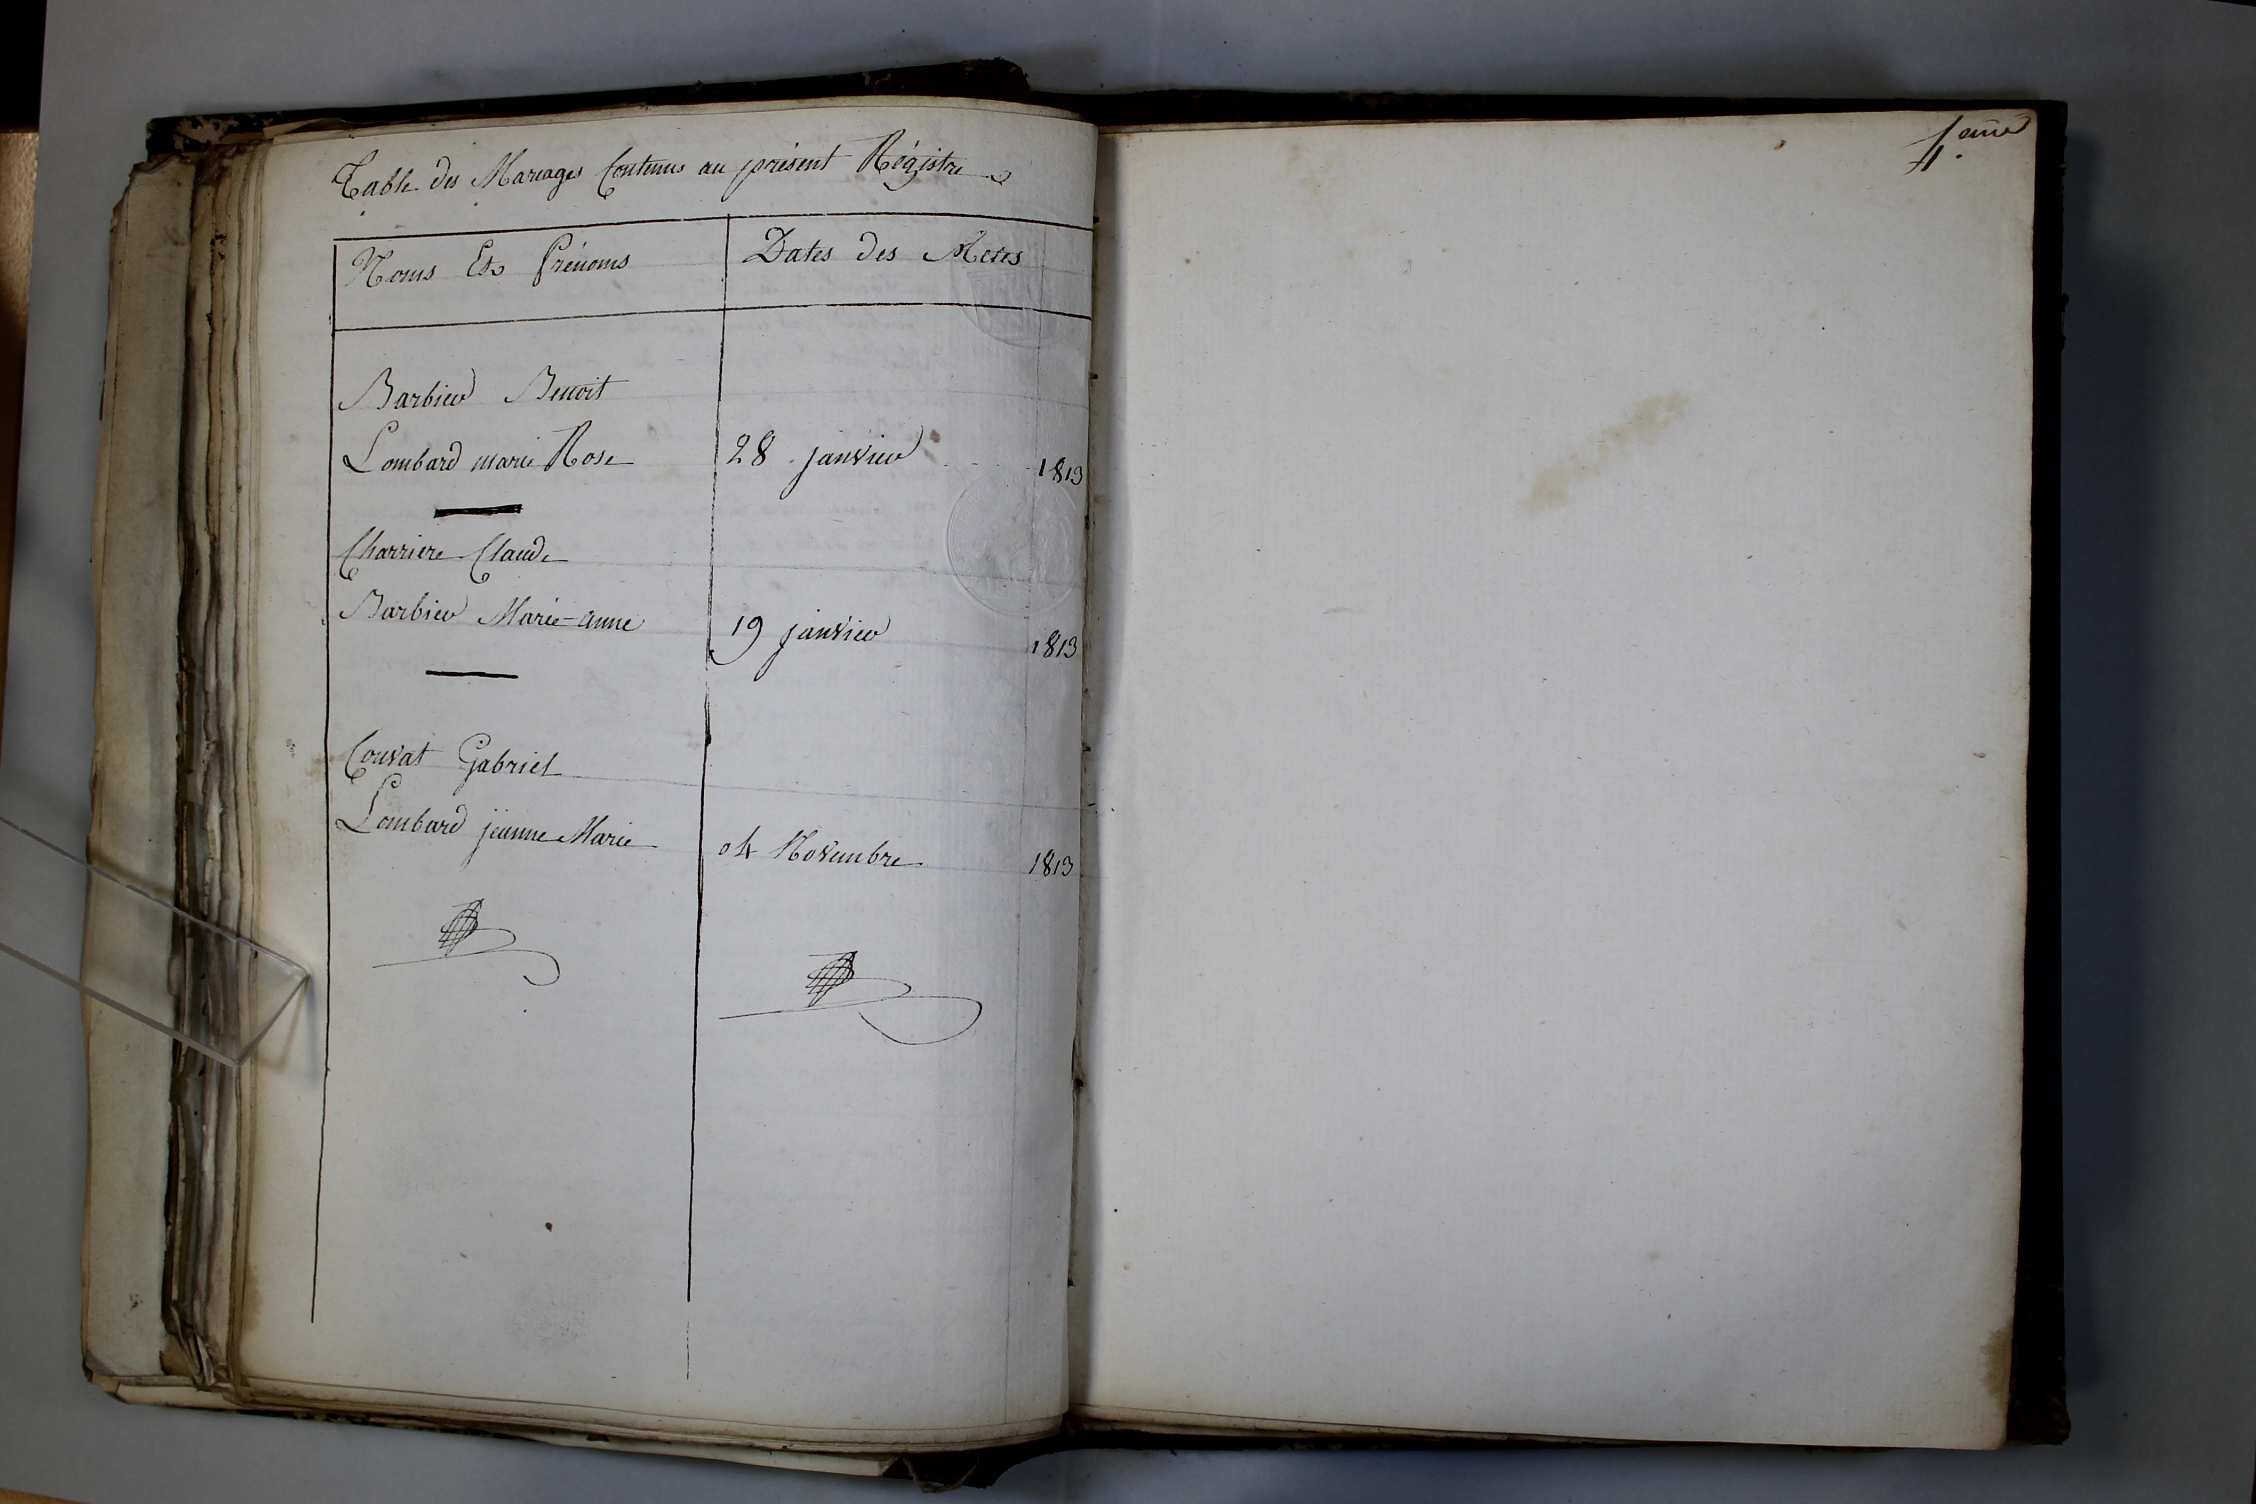 Table des Mariages Contenus au présent Régistre
Noms Et Prénoms
Dates des Actes
Barbier Benoit
Lombard marie Rose 28 janvier 1813
Charriere Claude
Barbier Marie-anne 19 janvier 1813
Couvat Gabriel
Lombard jeanne Marie 04 Novembre 1813
4.eme